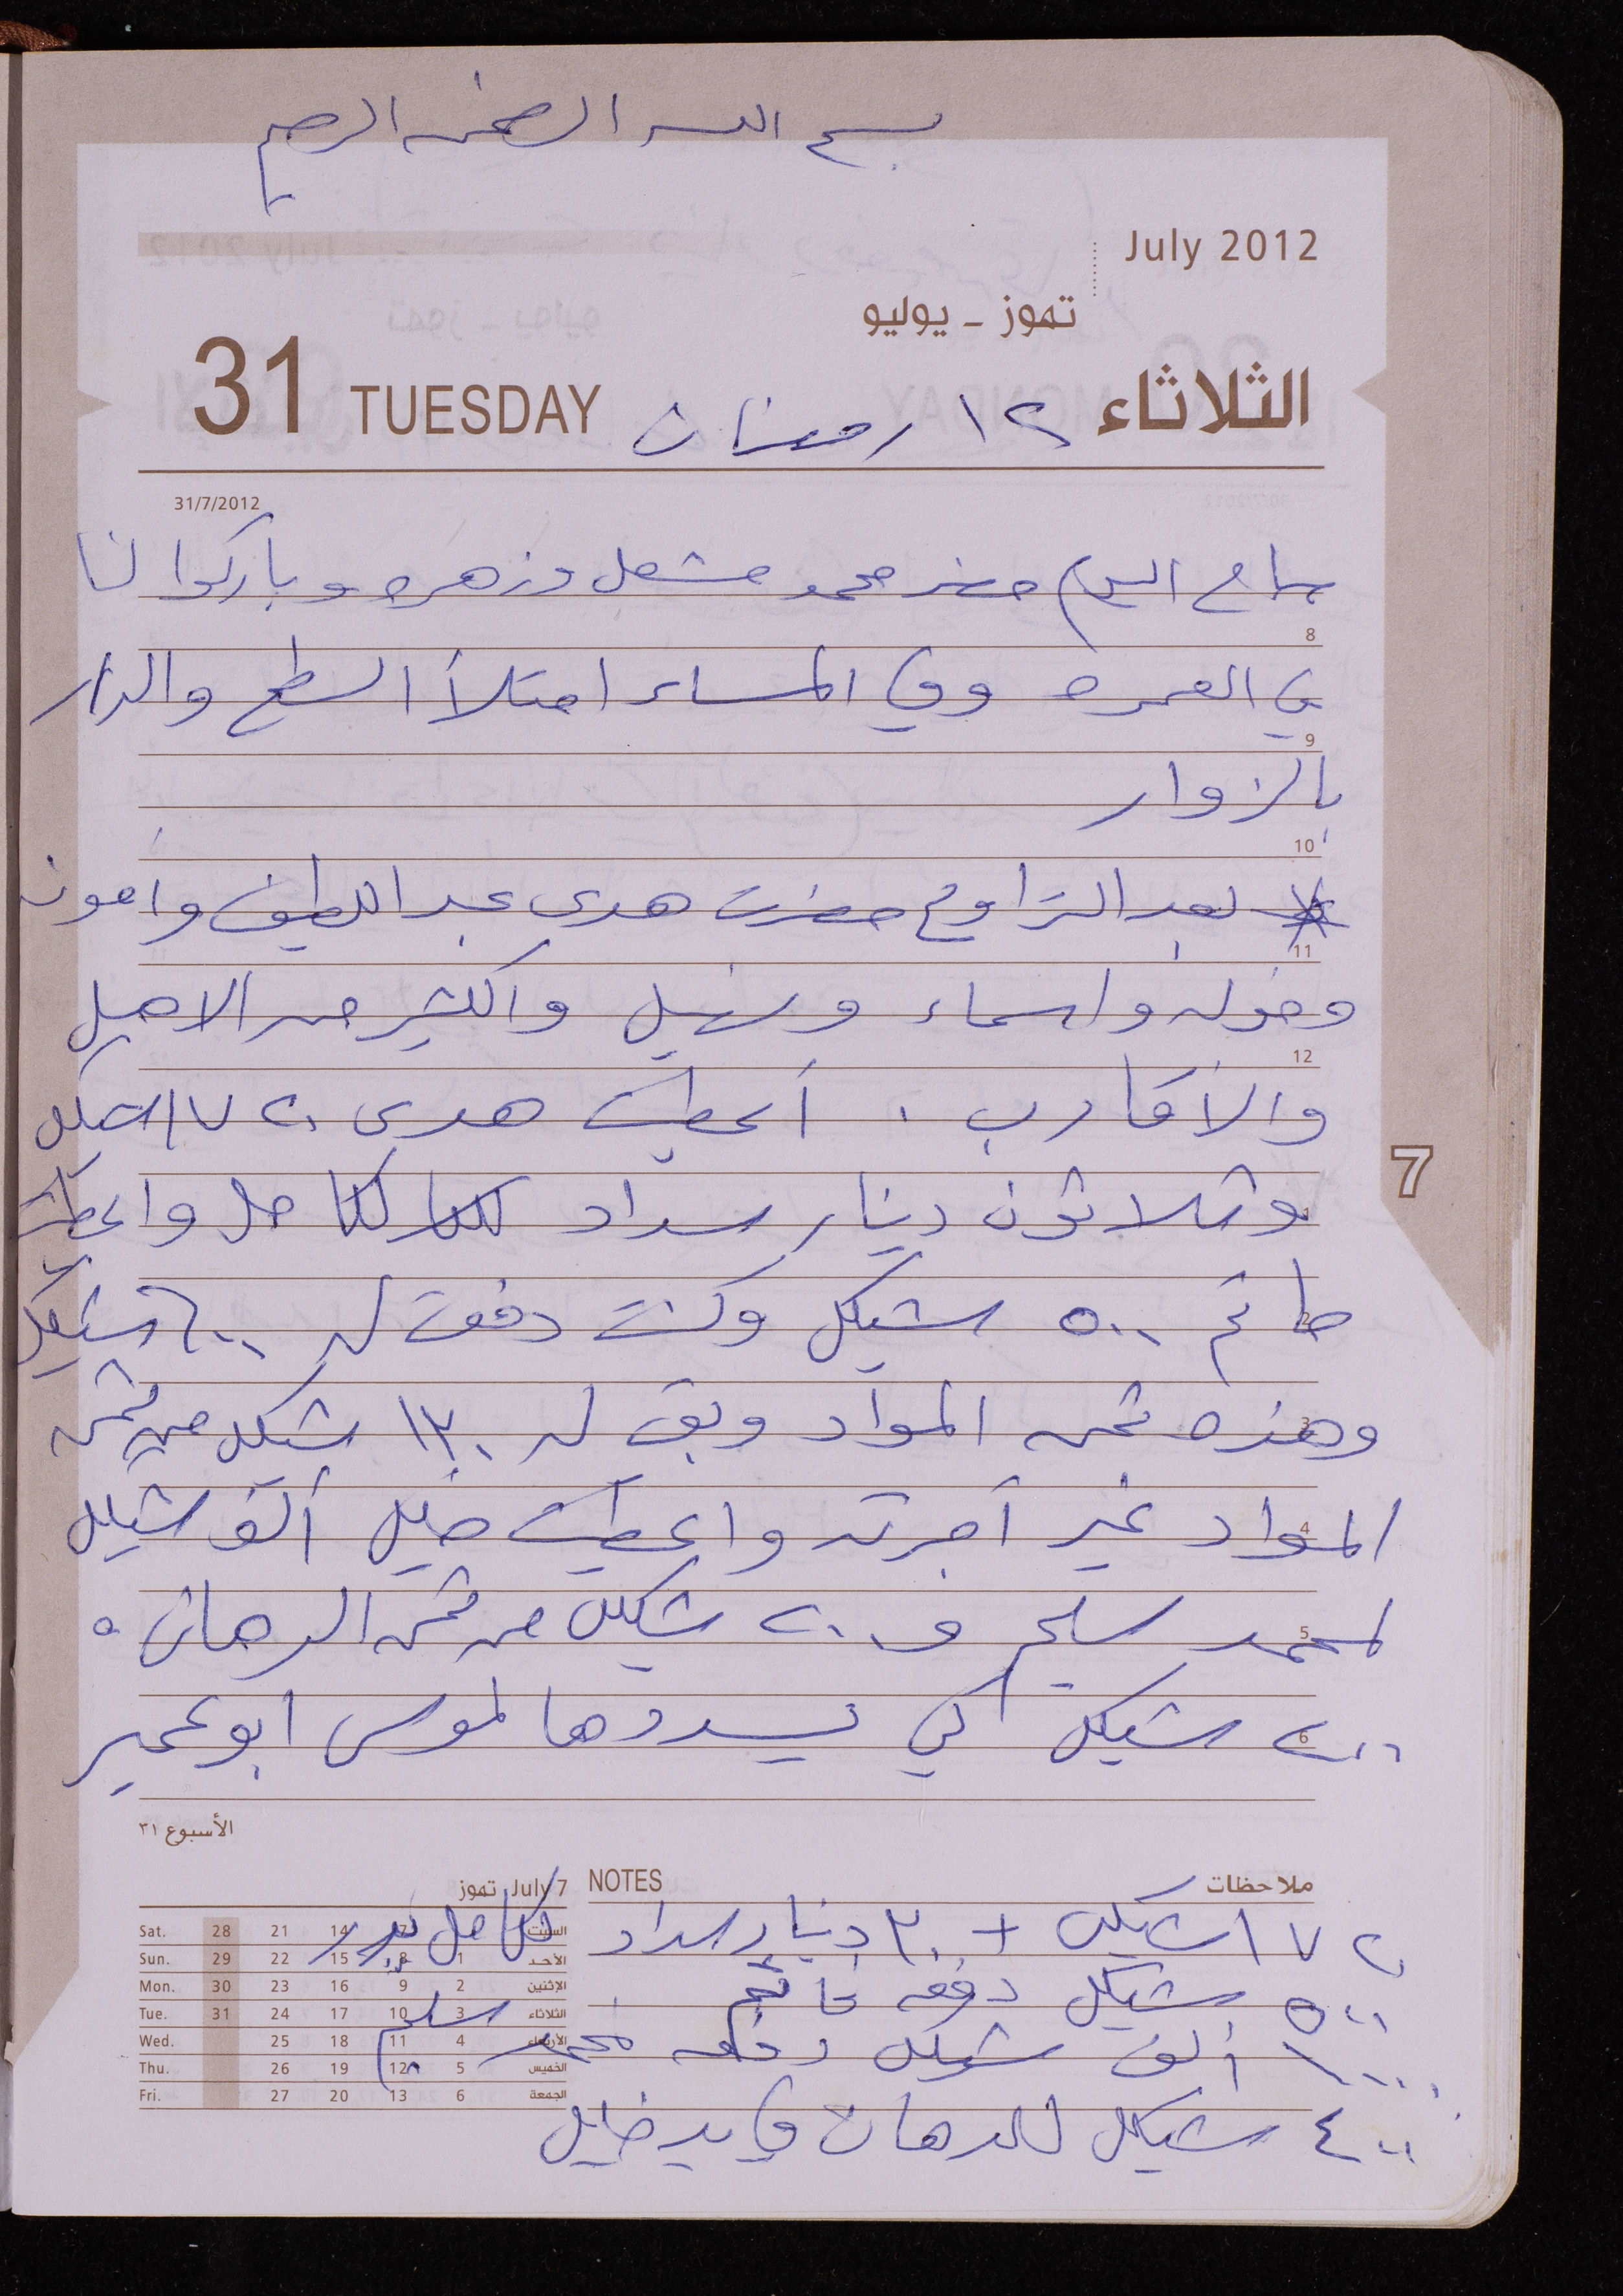 بسم الله الرحمن الرحيم
July 2012
تموز ـ يوليو
31 TUESDAY ١٢ رمضان الثلاثاء
31/7/2012
صباح اليوم حضر محمد مشعل وزهره وباركوا لنا
8
في العمره وفي المساء امتلأ السطح والدار
9
بالزوار
10
بعد التراويح حضرت هدى عبد اللطيف واخوها
11
وخوله واسماء وسهيل والكثير من الاهل
12
والأقارب . أعطيت هدى ١٧٢٠ شيكل
وثلاثون دينار سداد لكامل واعطيت
حاتم ٥٠٠ شيكل وكنت دفعت له ٦٠٠ شيكل
2
وهذه ثمن المواد وبقي له ١٣٠ شيكل من ثمن
3
المواد غير أجرته واعطيت خليل ألف شيكل
4
لمحمد سليم و ٢٠٠ شيكل من ثمن الدهان .
5
٢٠٠ شيكل كي يسددها لموسى ابو عمير
6
7
الأسبوع ٣١
ملاحظات NOTES
July 7 تموز
١٧٢٠ شيكل + ٣٠ دينار سداد لكامل
٥٠٠ شيكل دفعه حاتم
١٠٠٠ ألف شيكل دفعه محمد سليم
٤٠٠ شيكل للدهان في يد خليل
Sat. 28 21 14 7 السبت
Sun. 29 22 15 8 1 الأحد
Mon. 30 23 16 9 2 الإثنين
Tue. 31 24 17 10 3 الثلاثاء
Wed. 25 18 11 4 الأربعاء
Thu. 26 19 12 5 الخميس
Fri. 27 20 13 6 الجمعة